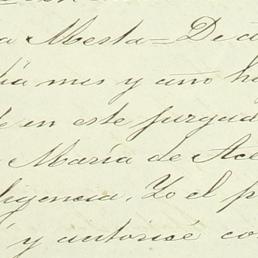 a Mesta = De a
dia mes y año h
de en este juzgad
María de Ace
ligencia. Yo el p
y autorice co